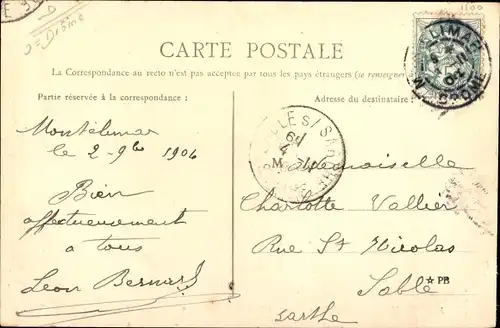 D = Drôme
1500
CARTE POSTALE
La Correspondance au recto n'est pas acceptée par tous les pays étrangers (se renseigner
Partie réservée à la correspondance :
Adresse du destinataire :
Montélimar
le 2-9bre 1904
Bien
affectueusement
a tous
Léon Bernard
M ademoiselle
Charlotte Vallier
Rue St Nicolas
Sablé
★ PB
Sarthe